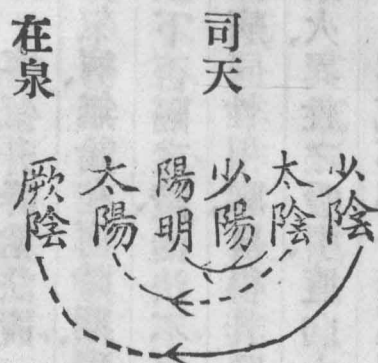 司天
在泉
少陰
太陰
少陽
陽明
太陽
厥陰